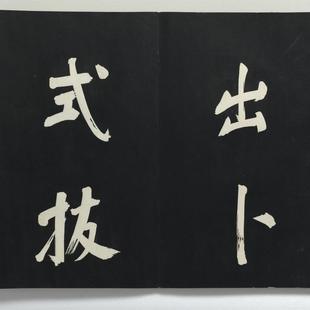 出卜
式拔